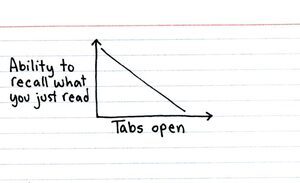 Ability to
recall what
you just read
Tabs open